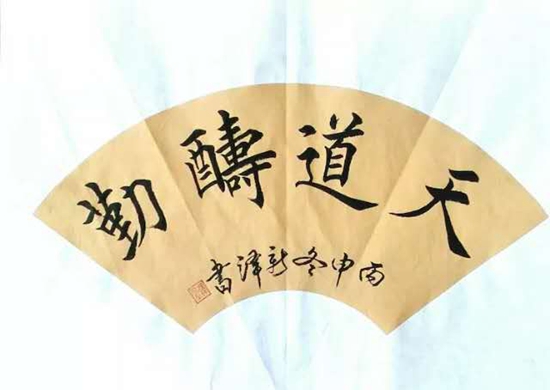 天道酬勤
丙申冬新泽书